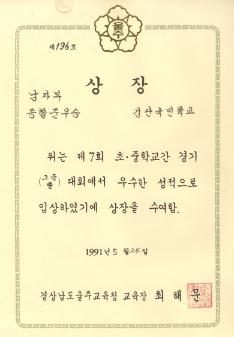 울주
제196호
상장
남자부
종합준우승 검산국민학교
위는 제7회 초·중학교간 경기
대회에서 우수한 성적으로
입상하였기에 상장을 수여함.
1991년 5월 24일
경상남도울주교육청 교육장 최해문